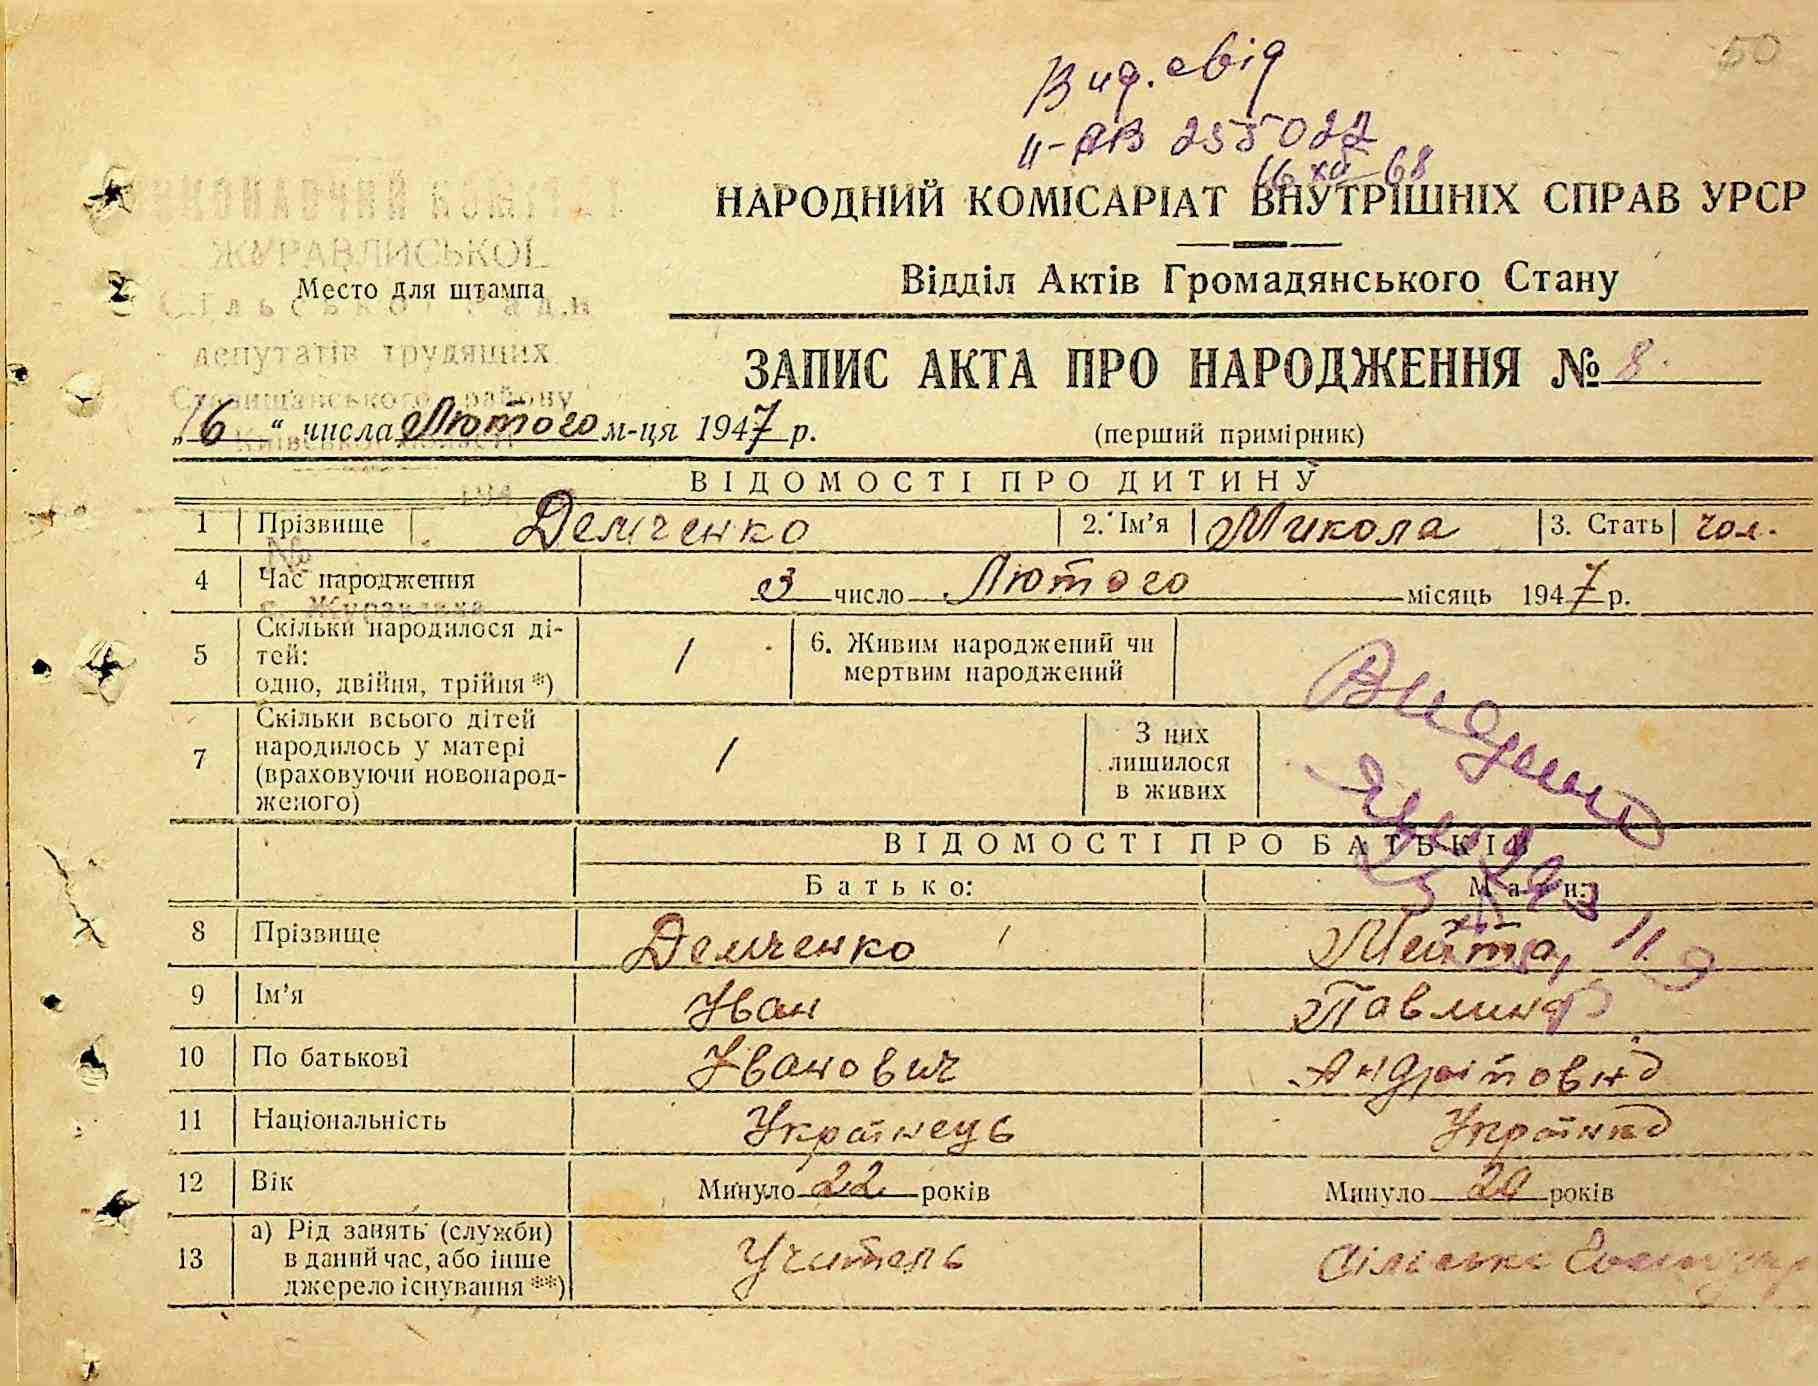 50
Вид. свід
II-АВ 255027
16 XII 68
НАРОДНИЙ КОМІСАРІАТ ВНУТРІШНІХ СПРАВ УРСР
Відділ Актів Громадянського Стану
ЖУРАВЛИСЬКОЇ
Место для штампа
депутатів трудящих
Ставищанського району
ЗАПИС АКТА ПРО НАРОДЖЕННЯ № 8.
„6“ числа Лютого м-ця 1947 р.
(перший примірник)
ВІДОМОСТІ ПРО ДИТИНУ
1 Прізвище Демченко 2. Ім'я Микола 3. Стать чол.
4 Час народження 3 число Лютого місяць 1947 р.
с. Журавлиха
5 Скільки народилося ді-
тей:
одно, двійня, трійня *) 1
6. Живим народжений чи
мертвим народжений
7 Скільки всього дітей
народилось у матері
(враховуючи новонарод-
женого) 1
З них
лишилося
в живих
ВІДОМОСТІ ПРО БАТЬКІВ
Батько: Мати:
8 Прізвище Демченко
9 Ім'я Іван Павлина
10 По батькові Іванович Андріївна
11 Національність Українець Українка
12 Вік Минуло 22 років Минуло 20 років
13 а) Рід занять (служби)
в даний час, або інше
джерело існування **) Учитель